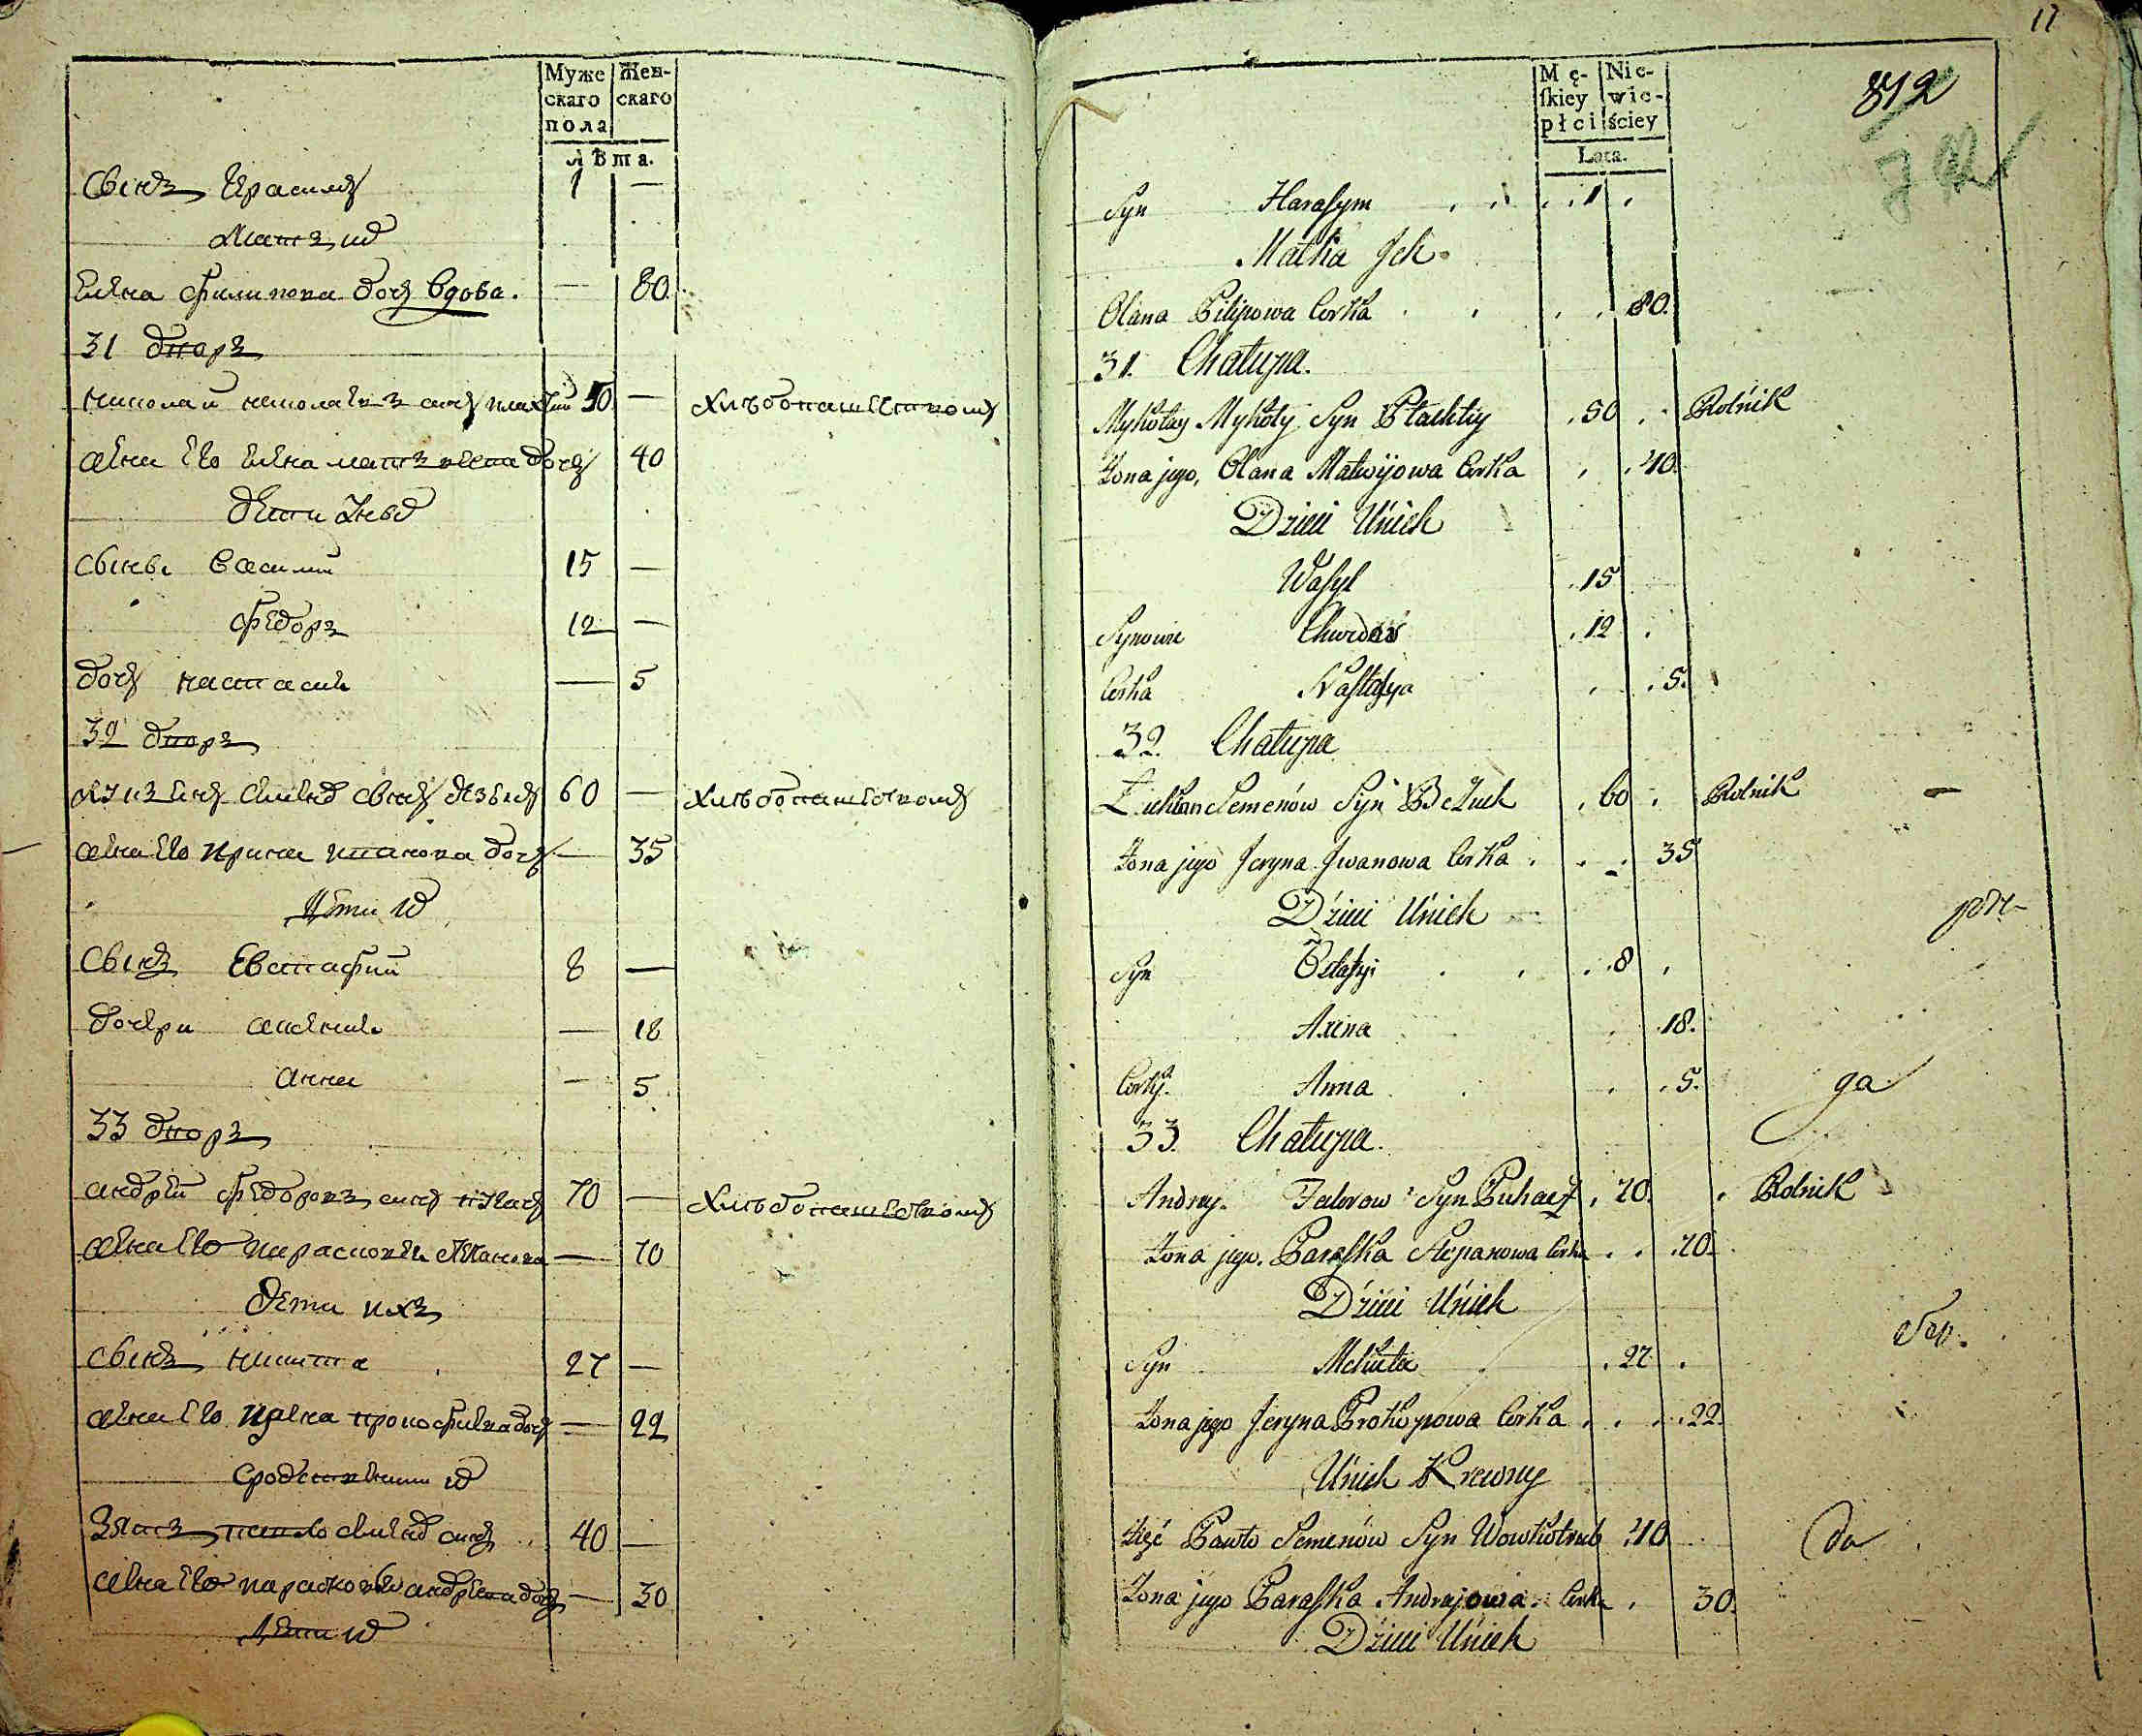 Муже Жен-
скаго скаго
пола
лѣта.
Сынъ Герасимъ 1 —
Мать ихъ
Елена Филипова дочь вдова. — 80.
31 дворъ
Николай Николаевъ сынъ Плахтий 50 — Хлѣбопашествомъ
Жена его Елена Матвѣева дочь 40
Дети Ихъ
Сыны Василий 15 —
Федоръ 12 —
дочь Настасия — 5
32 дворъ
Семенов сынъ 60 — Хлѣбопашествомъ
Жена его Ирина Иванова дочь — 35
Дѣти ихъ
Сынъ Евстафий 8 —
Дочери Аксения — 18
Анна — 5
33 дворъ
Андрей Федоровъ сынъ Пугачъ 70 — Хлѣбопашествомъ
Жена его Парасковея Степанова — 70
Дети ихъ
Сынъ Никита 27 —
Жена его Ирина Прокофиева дочь — 22
Сродственники ихъ
Зять Павло Семенов сынъ 40 —
Жена его Парасковея Андреева дочь — 30
Дѣти ихъ
17
Mę- Nie-
ſkiey wie-
płci ściey
Lata.
812
Syn Haraſym . 1 .
Matka Jch
Olana Pilipowa Corka . . 80.
31. Chałupa.
Mykołay Mykoły Syn Płachtiy . 50 . Rolnik
Żona jego, Olana Matwijowa Corka . . 40.
Dzieci Unich
Waſyl . 15
Synowie Chwedor . 12 .
Corka Naſtaſya . . 5.
32. Chałupa
Łukian Semenów Syn . 60 . Rolnik —
Żona jego Jeryna Jwanowa Corka . . . 35
Dzieci Unich
Syn Ostaſyi . . 8 .
Axena . 18.
Corky. Anna . . 5.
ga
33. Chałupa.
Andrey. Fedorow Syn Puhacz . 70. . Rolnik
Żona jego. Paraſka Stepanowa Corka . . . 70.
Dzieci Unich
Syn Mekieta . 27 .
Żona jego Jeryna Prokopowa Corka . . . 22.
Unich Krewny
Zięć Pawło Semenów Syn Wowkotrub . 40
da
Żona jego Paraſka Andrejowa Corka . 30.
Dzieci Unich